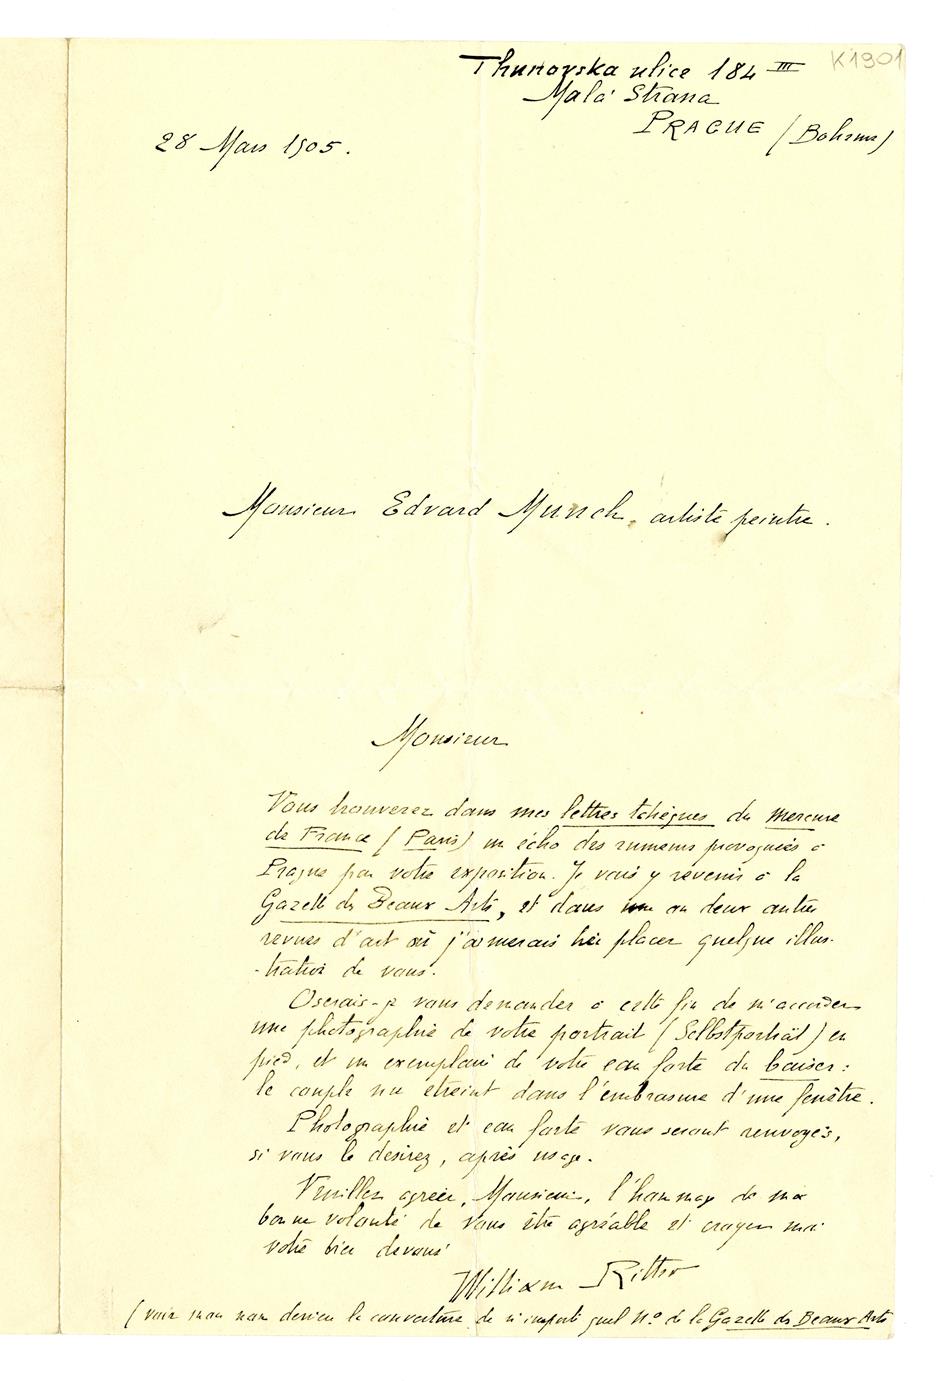 K1901
Thunovska ulice 184 III
Malá Strana
PRAGUE (Boheme)
28 Mars 1905.
Monsieur Edvard Munch, artiste peintre.
Monsieur
Vous trouverez dans mes lettres tchèques du mercure
de France (Paris) un écho des rumeurs provoquées à
Prague par votre exposition. Je vais y revenir à la
Gazette des Beaux Arts, et dans une ou deux autres
revues d'art où j'aimerais placer quelque illus-
-tration de vous.
Oserais-je vous demander à cette fin de m'accorder
une photographie de votre portrait (Selbstportrait) en
pied, et un exemplaire de votre eau forte du baiser:
le couple nu étreint dans l'embrasure d'une fenêtre.
Photographie et eau forte vous seront renvoyés,
si vous le désirez, après usage.
Veuillez agréer, Monsieur, l'hommage de ma
bonne volonté de vous être agréable et croyez moi
votre bien dévoué
William Ritter
(voir mon nom derrière la couverture de n'importe quel No. de la Gazette des Beaux Arts